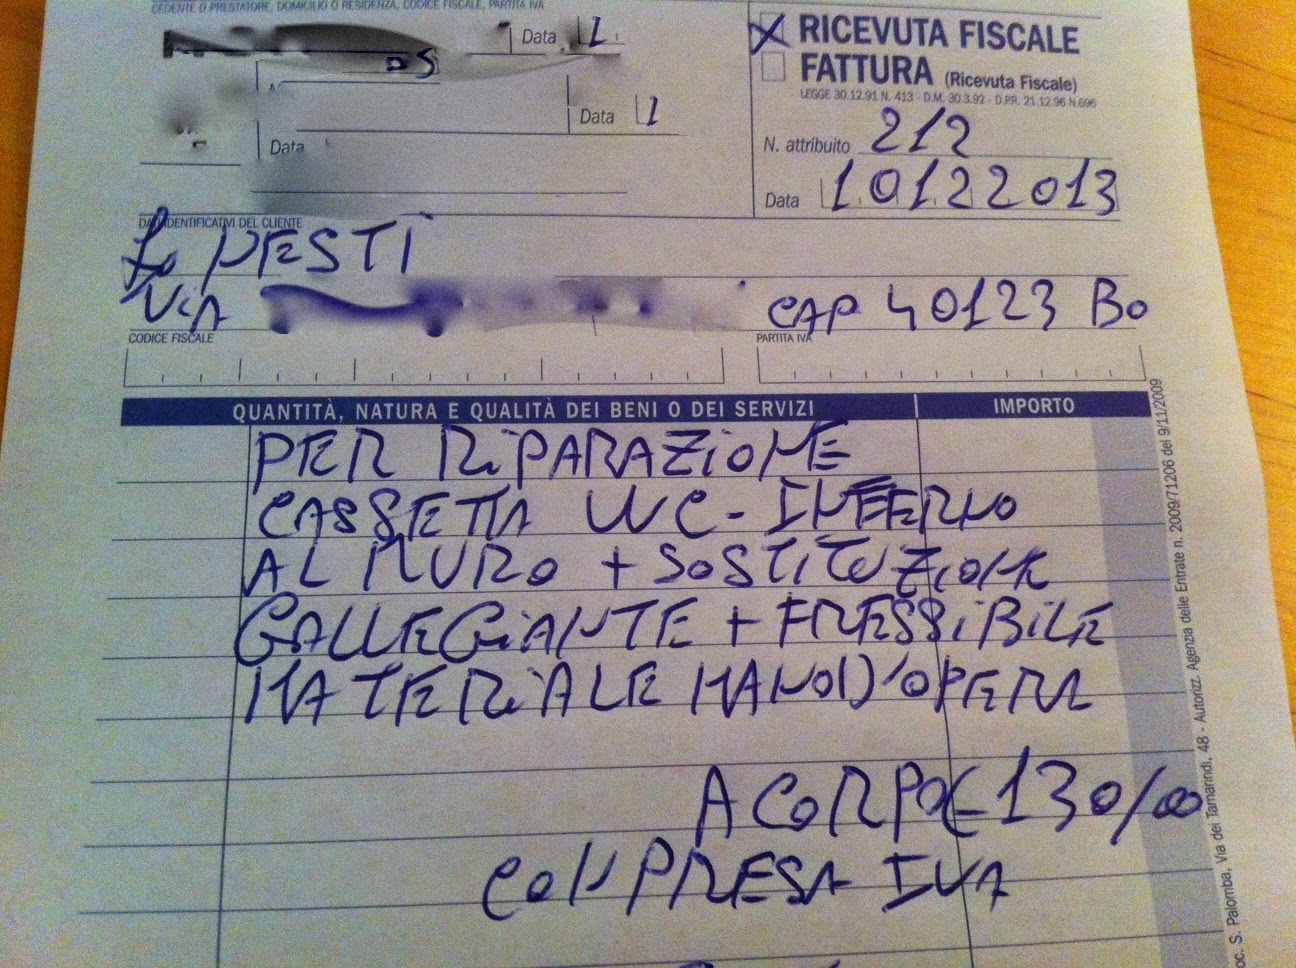 CEDENTE O PRESTATORE, DOMICILIO O RESIDENZA, CODICE FISCALE, PARTITA IVA
Data 1
Data 1
Data
X RICEVUTA FISCALE
FATTURA (Ricevuta Fiscale)
LEGGE 30.12.91 N. 413 - D.M. 30.3.92 - D.P.R. 21.12.96 N.696
N. attribuito 212
Data 10122013
DATI IDENTIFICATIVI DEL CLIENTE
Lo PESTI
ViA CAP 40123 Bo
CODICE FISCALE
PARTITA IVA
QUANTITÀ, NATURA E QUALITÀ DEI BENI O DEI SERVIZI IMPORTO
PER RiPARAZiONE
CASSETTA WC - INFERNO
AL MURO + SOSTiTUZiONE
GALLEGGiANTE + FRESSiBiLE
MATERiALE MANOD'OPERA
A CORPO € 130/00
COMPRESA IVA
oc. S. Palomba, Via dei Tamarindi, 48 - Autorizz. Agenzia delle Entrate n. 2009/71206 del 9/11/2009